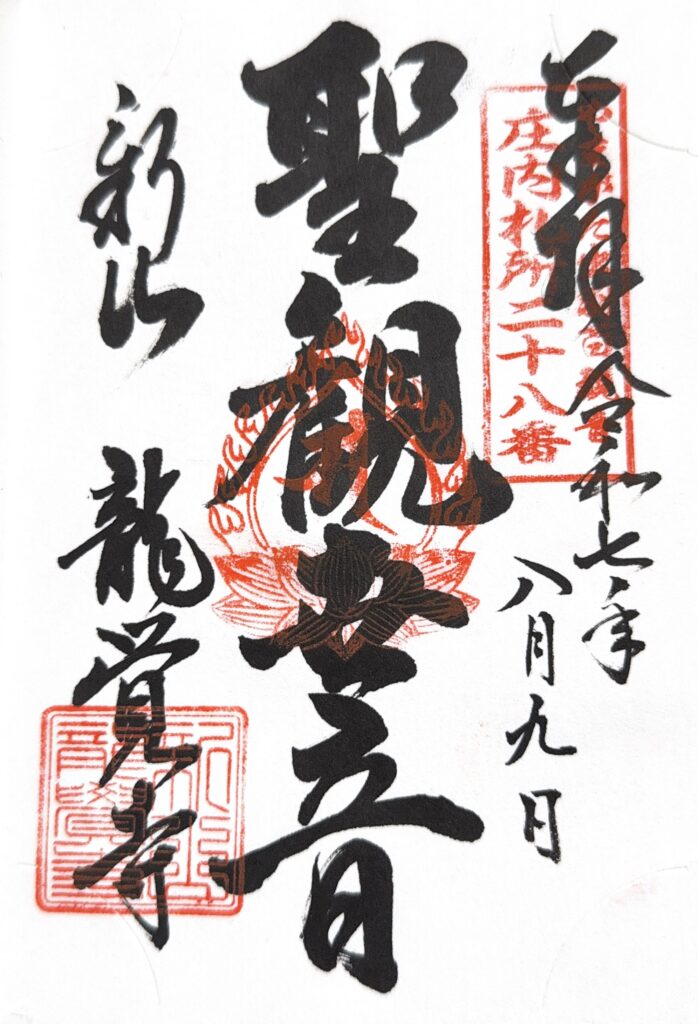 奉拝 令和七年
八月九日
庄内札所二十八番
聖観世音
新山
龍覚寺